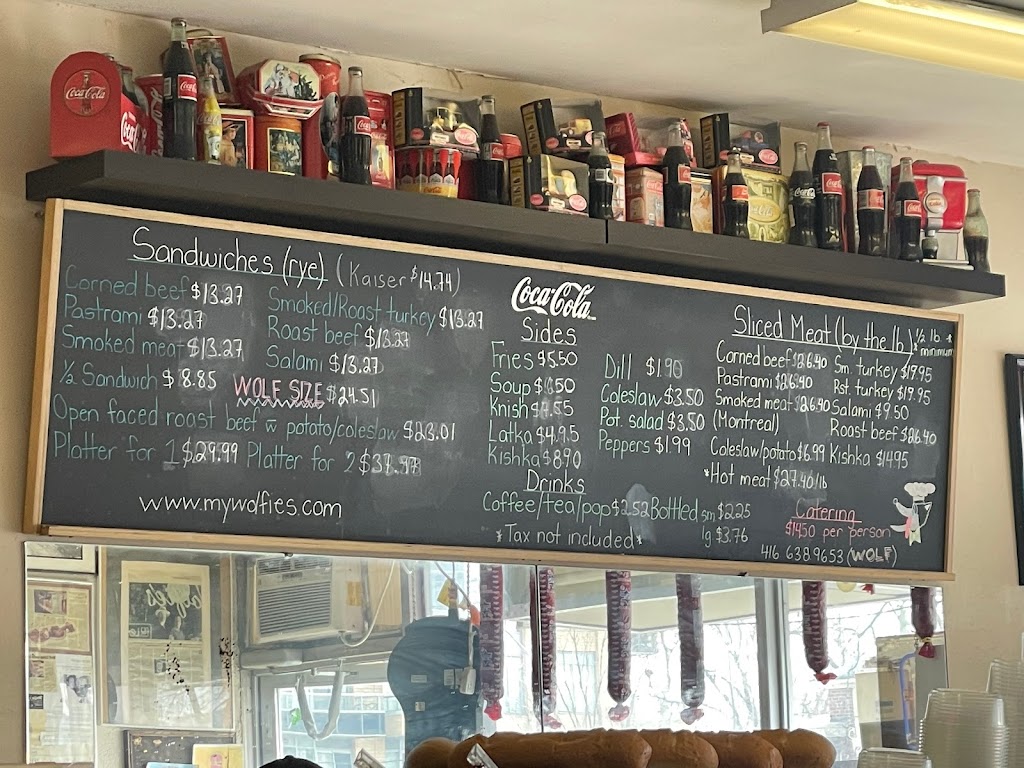 Coca-Cola
Sandwiches (rye) (Kaiser $14.74)
Corned beef $13.27
Pastrami $13.27
Smoked meat $13.27
Smoked/Roast turkey $13.27
Roast beef $13.27
Salami $13.27
½ Sandwich $8.85
WOLF SIZE $24.51
Open faced roast beef w potato/coleslaw $23.01
Platter for 1 $29.99 Platter for 2 $37.97
www.mywolfies.com
Coca-Cola
Sides
Fries $5.50
Soup
Knish
Latka $4.95
Kishka $8.90
Dill $1.90
Coleslaw $3.50
Pot. salad $3.50
Peppers $1.99
Drinks
Coffee/tea/pop $2.52 Bottled sm $2.25
lg $3.76
*Tax not included*
Sliced Meat (by the lb) ½ lb * minimum
Corned beef $26.40
Pastrami $26.40
Smoked meat $26.40
(Montreal)
Coleslaw/potato $6.99
*Hot meat $27.40/lb
Sm. turkey $19.95
Rst. turkey $19.95
Salami $9.50
Roast beef $26.40
Kishka $14.95
Catering
$14.50 per person
416 638 9653 (WOLF)